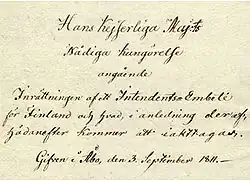 Hans Kejserliga Maj:ts
Nådiga Kungörelse
angående
Inrättningen af ett Intendents Embete
för Finland och hvad, i anledning deraf,
hädanefter kommer att i akt tagas.
Gifven i Åbo, den 3. September 1811.–